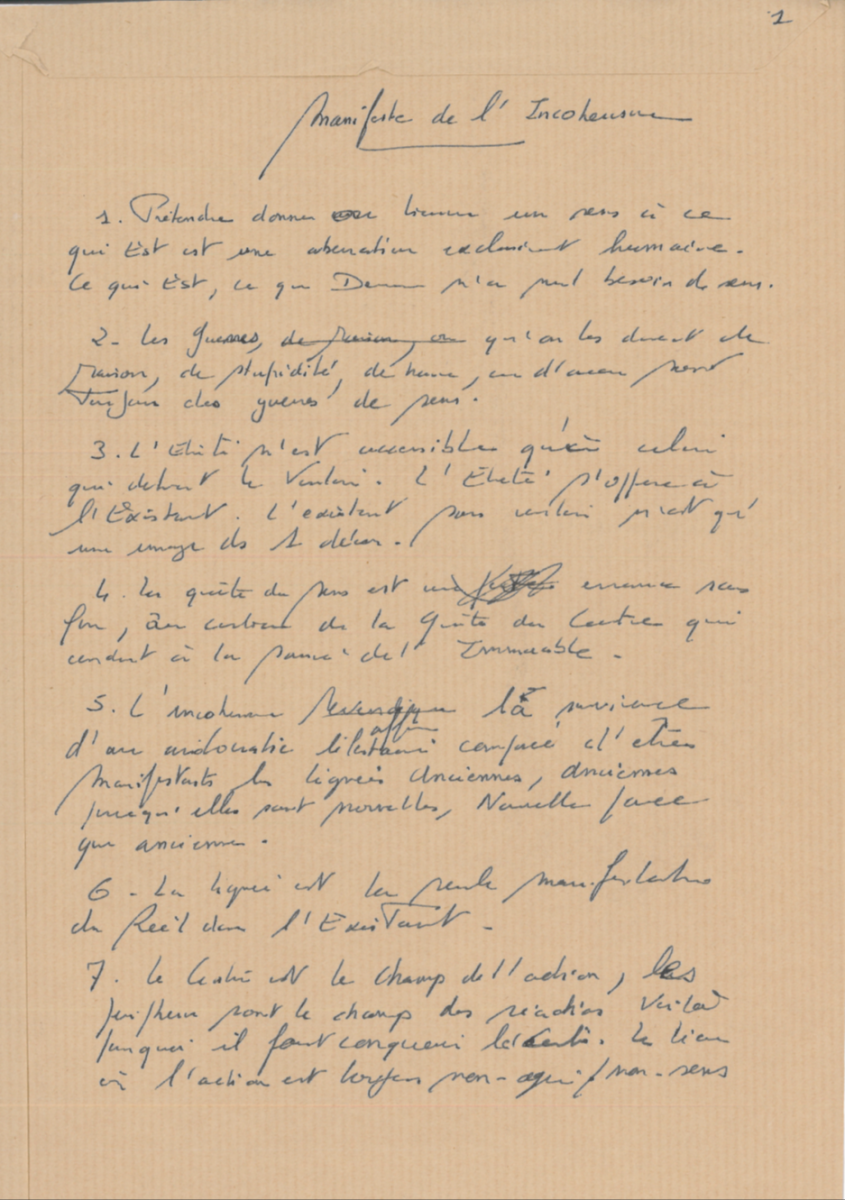 1
Manifeste de l'Incohérisme
1. Prétendre donner ou trouver un sens à ce
qui Est est une aberration exclusivement humaine.
Ce qui Est, ce qui Demeure n'a nul besoin de sens.
2- Les guerres, qu'on les disent de
Raison, de stupidité, de haine, ou d'amour sont
Toujours des guerres de sens.
3. L'Etreté n'est accessible qu'à celui
qui détruit le Vouloir. L'Etreté s'offre à
l'Existant. L'existant sans vouloir n'est qu'
une image ds 1 décor.
4. La quête du sens est une errance sans
fin, au contraire de la Quête du Centre qui
conduit à la saveur de l'Immuable.
5. L'incohérisme affirme la survivance
d'une aristocratie libertaire composée d'êtres
manifestants les lignées Anciennes, Anciennes
puisqu'elles sont nouvelles, Nouvelles parce
que anciennes.
6 - La lignée est la seule manifestation
du Réel dans l'ExisTant.
7. Le Centre est le champ de l'action, les
périphéries sont le champ des réactions Voilà
pourquoi il faut conquérir le Centre. Le lieu
où l'action est toujours non-agir / non-sens